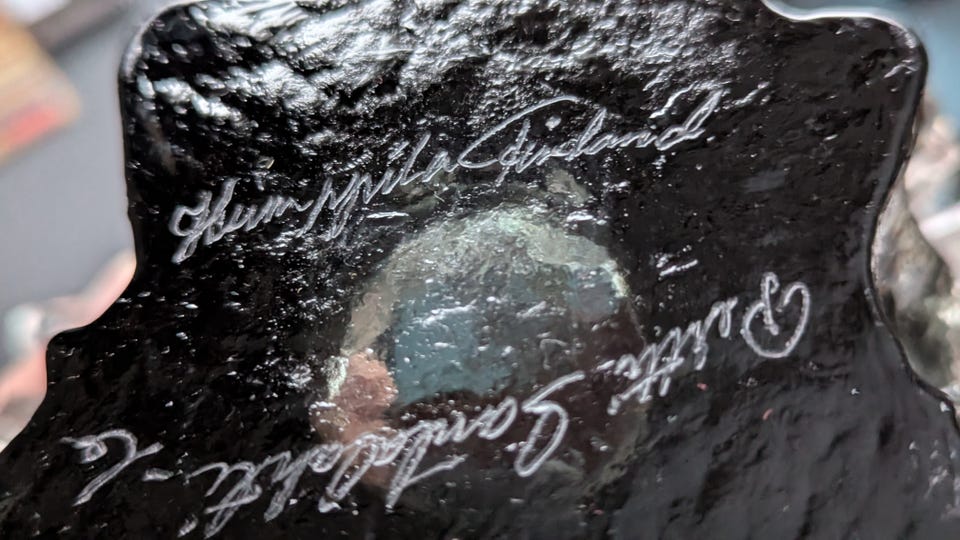 Humppila Finland
Pertti Santalahti